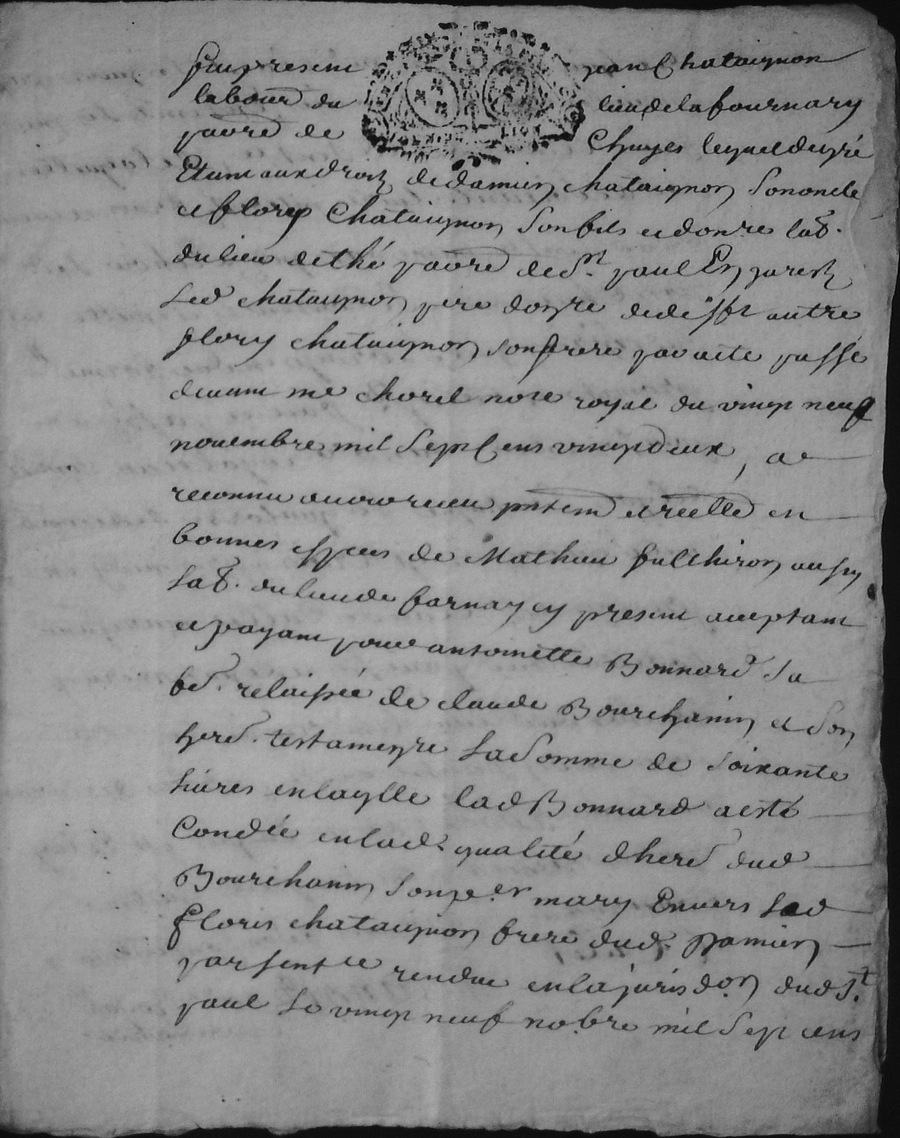 fut present jean Chataignon
labour du lieu de la fournary
parr de Chuyes lequel de gré
Etant aux droit de damien chataignon son oncle
et flory Chataignon son fils et donre lab.
du lieu de thé parr de st paul En jarest
led chataignon pere donre de defft autre
flory chataignon son frere par acte passé
devant me chorel nore royal du vingt neuf
novembre mil sept cens vingt deux, a
reconnu avoir receu pntemt et reellemt en
bonnes especes de Mathieu fulchiron aussy
lab. du lieu de farnay cy present acceptant
et payant pour antoinette Bonnard sa
relaissée de claude Bourchanin et son
herd. testamentre la somme de soixante
livres en laqlle lad Bonnard a esté
Condée en lad. qualité dherd dud
Bourchanin son mary Envers led
floris chataignon frere dud. Damien
par sentce rendue en la jurisdon dud St
paul le vingt neuf nobre mil sept cens